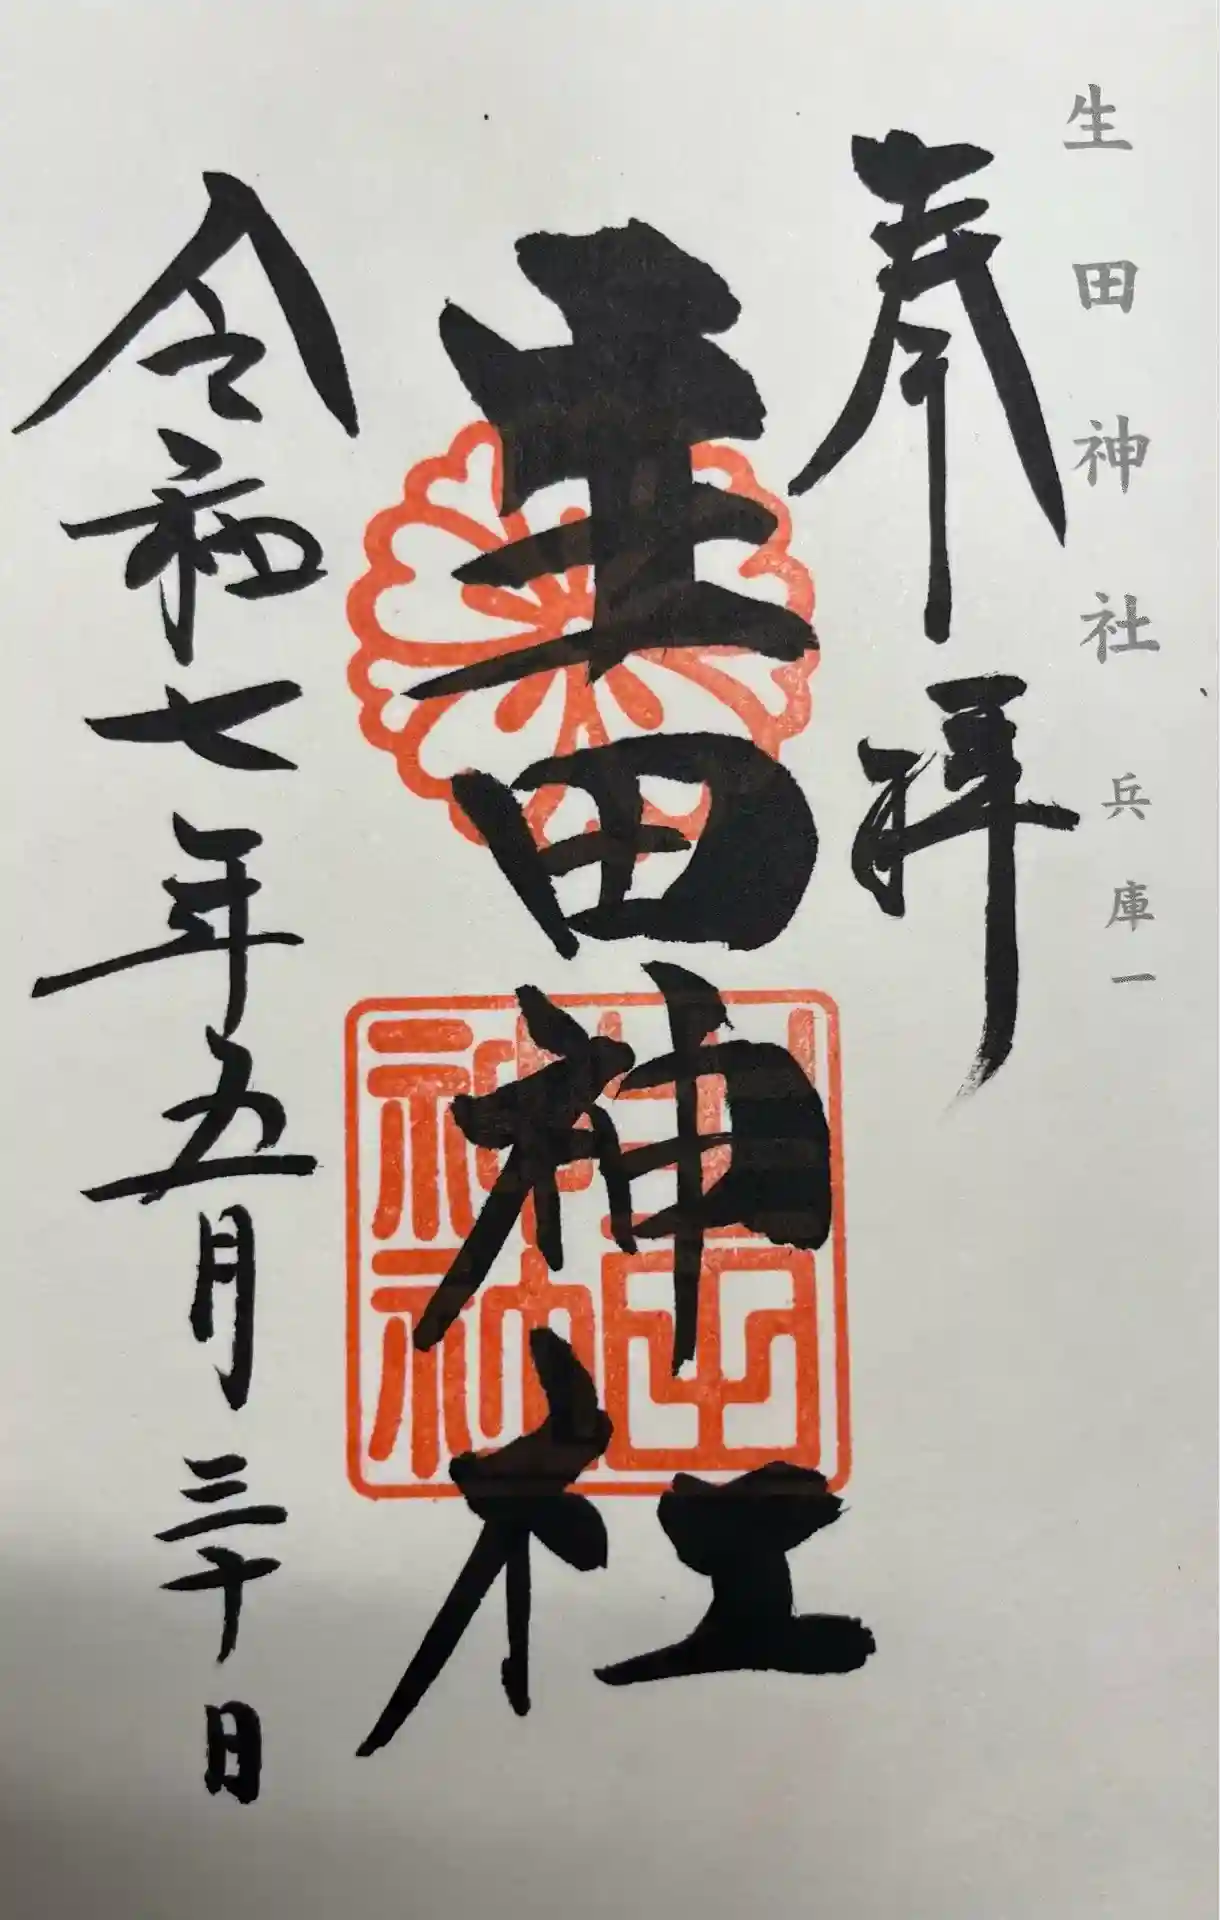 生田神社 兵庫一
奉拝
生田神社
生田
神社
令和七年五月三十日